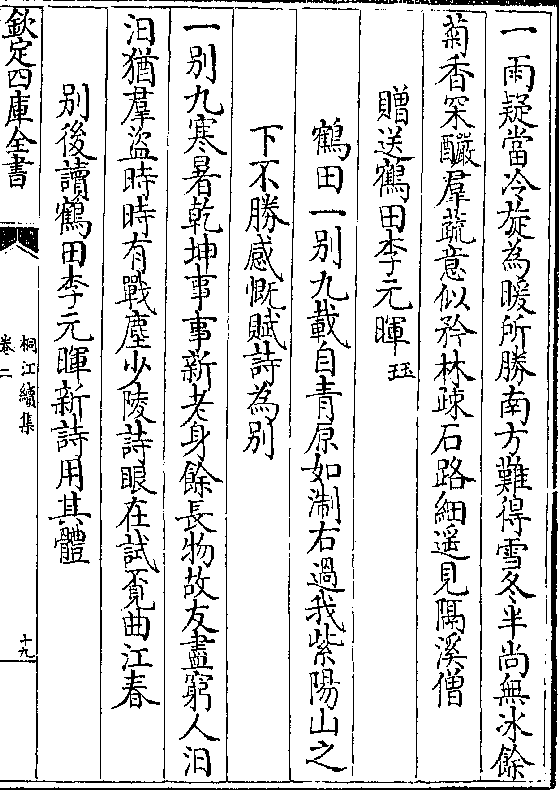 一雨疑當冷旋為暖所勝南方難得雪冬半尚無冰餘
菊香罙釅羣蔬意似矜林疎石路細遥見隔溪僧
贈送鶴田李元暉珏
鶴田一别九載自青原如淛右過我紫陽山之
下不勝感慨賦詩為别
一别九寒暑乾坤事事新老身餘長物故友盡窮人汩
汩猶羣盗時時有戰塵少陵詩眼在試覓曲江春
别後讀鶴田李元暉新詩用其體
欽定四庫全書
桐江續集
卷二
十九